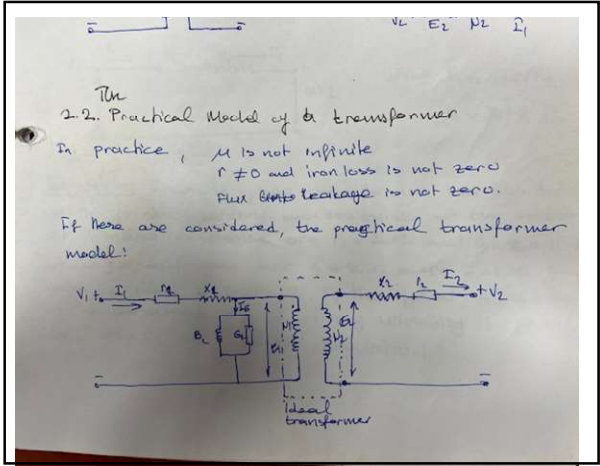 V2 E2 N2 I1
The
2.2. Practical Model of a transformer
In practice, μ is not infinite
r ≠ 0 and iron loss is not zero
Flux leakage is not zero.
If these are considered, the practical transformer
model:
V1 + I1 r1 X1 X2 r2 I2 + V2
I0
BL GL E1 N1 N2 E2
Ideal
transformer